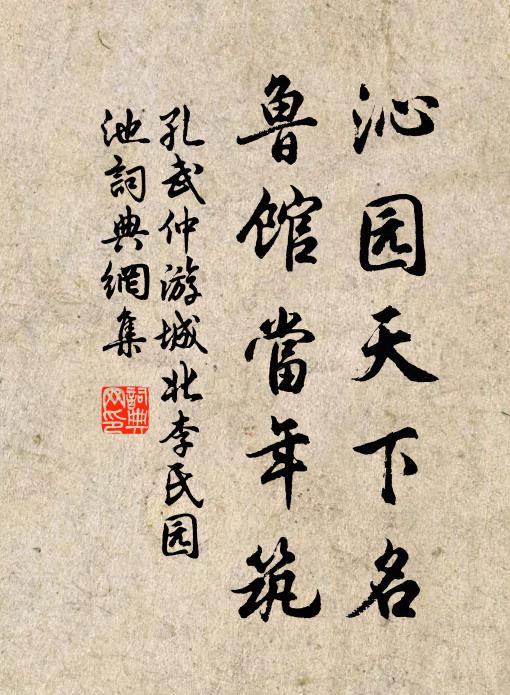 沁园天下名
鲁馆當年筑
孔武仲游城北李氏园
池詞典網集
詞典
网印